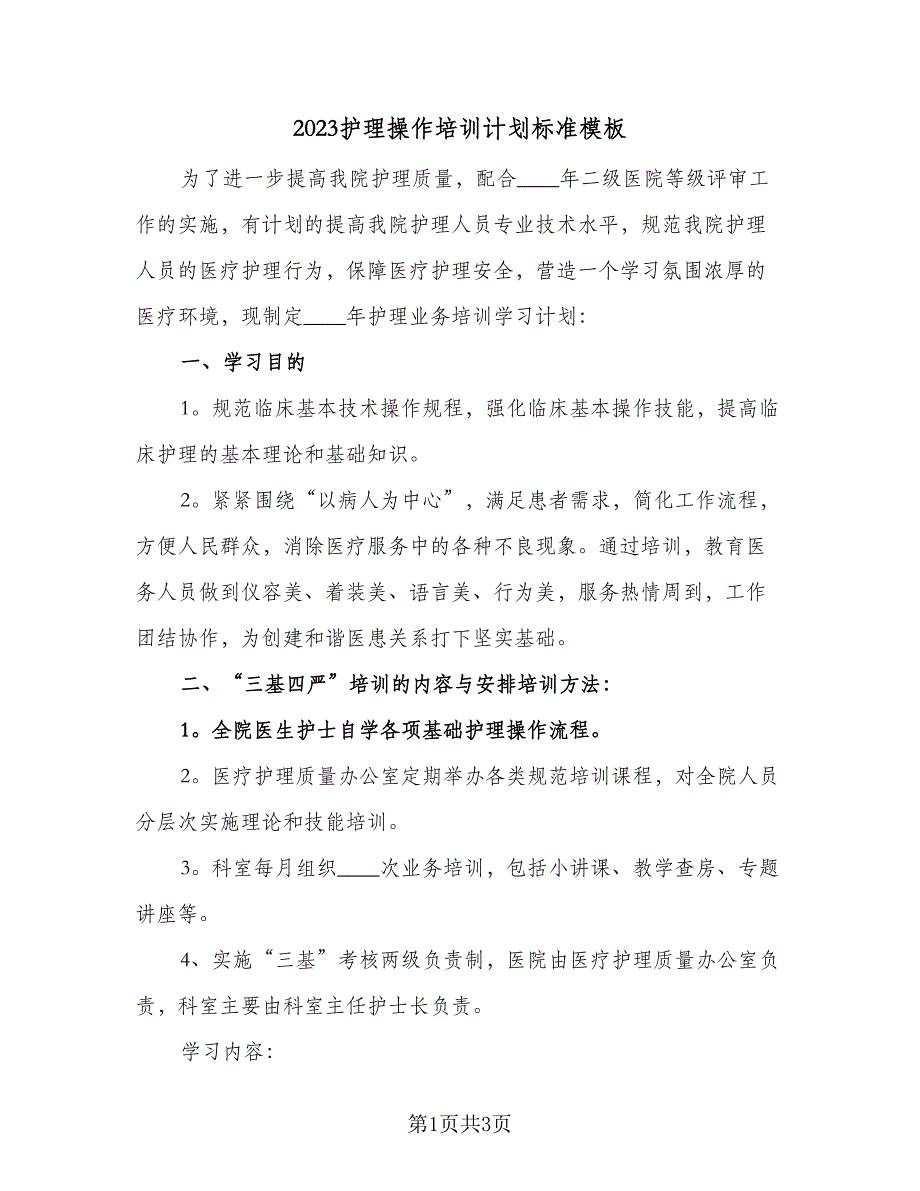 2023护理操作培训计划标准模板
为了进一步提高我院护理质量，配合____年二级医院等级评审工
作的实施，有计划的提高我院护理人员专业技术水平，规范我院护理
人员的医疗护理行为，保障医疗护理安全，营造一个学习氛围浓厚的
医疗环境，现制定____年护理业务培训学习计划：
一、学习目的
1。规范临床基本技术操作规程，强化临床基本操作技能，提高临
床护理的基本理论和基础知识。
2。紧紧围绕“以病人为中心”，满足患者需求，简化工作流程，
方便人民群众，消除医疗服务中的各种不良现象。通过培训，教育医
务人员做到仪容美、着装美、语言美、行为美，服务热情周到，工作
团结协作，为创建和谐医患关系打下坚实基础。
二、“三基四严”培训的内容与安排培训方法：
1。全院医生护士自学各项基础护理操作流程。
2。医疗护理质量办公室定期举办各类规范培训课程，对全院人员
分层次实施理论和技能培训。
3。科室每月组织____次业务培训，包括小讲课、教学查房、专题
讲座等。
4、实施“三基”考核两级负责制，医院由医疗护理质量办公室负
责，科室主要由科室主任护士长负责。
学习内容：
第1页共3页